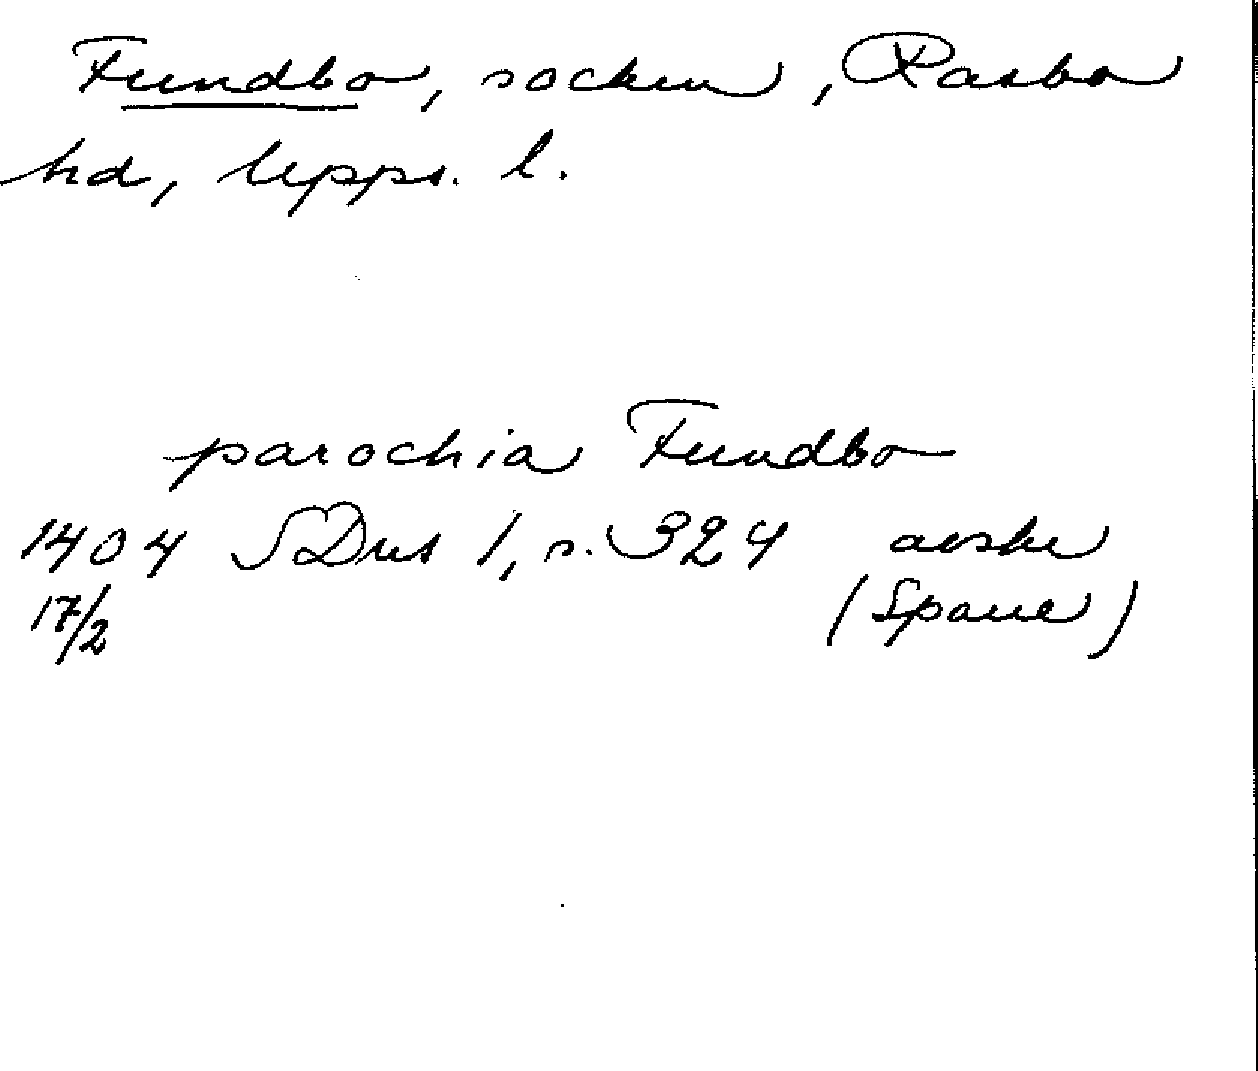 Fundbo, socken, Rasbo
hd, Upps. l.
parochia Fundbo
1404 SDns 1, s. 324 avskr
17/2 (Spaue)